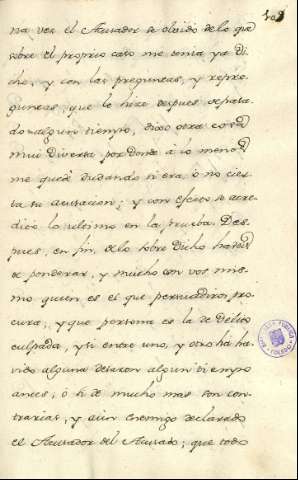 na vez el Acusador se olvidó de lo que
sobre el proprio caso me tenia ya di-
cho, y con las preguntas, y repre-
guntas, que le hize despues de pasa-
do algun tiempo, dixo otra cosa
mui diversa por donde á lo menos
me quedé dudando si era, ó no cier-
ta su acusacion; y con efecto se acre-
ditó lo ultimo en la prueba. Des-
pues, en fin, de lo sobre dicho habeis
de ponderar, y mucho con vos mis-
mo quien es el que persuadiros pro-
cura, y que persona es la de delito
culpada, y si entre uno, y otro há ha-
vido alguna desazon algun tiempo
antes, ó si de mucho mas son con-
trarias, y aún enemigo declarado
el Acusador del Acusado; que todo